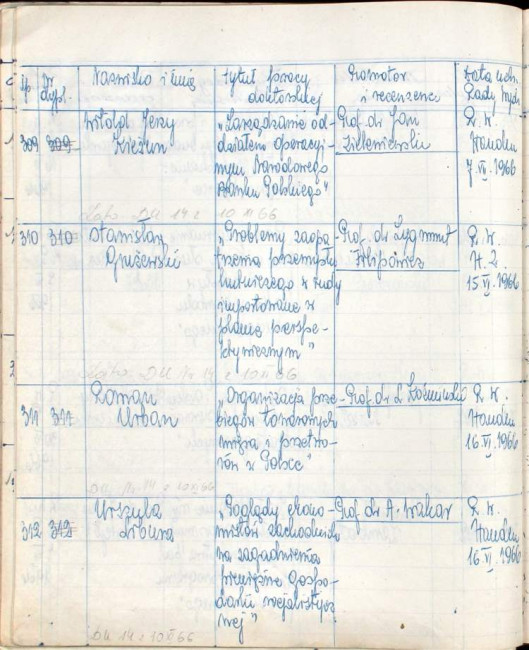 Lp Nr dypl. Nazwisko i imię Tytuł pracy doktorskiej Promotor i recenzenci Data uchw. Rady Wydz
309 309 Witold Jerzy Kieżun
„Zarządzanie od-
działem operacyj-
nym Narodowego
Banku Polskiego"
Prof. dr Jan
Zieleniewski
R. W.
Handlu
7.VI.1966
DU 14 z 10 XI 66
310 310 Stanisław
Grużewski
„Problemy zaopa-
trzenia przemysłu
hutniczego w rudy
importowane w
planie perspe-
ktywicznym"
Prof. dr Zygmunt
Filipowicz
R. W.
H. Z.
15 VI.1966
DU Nr 14 z 10 XI 66
311 311 Roman
Urban
„Organizacja prze-
biegów towarowych
mięsa i przetwo-
rów w Polsce"
Prof. dr L. Koźmiński
R. W.
Handlu
16 VI.1966
DU Nr 14 z 10 XI 66
312 312 Urszula
„Poglądy ekono-
mistów zachodnich
na zagadnienia
pieniężne gospo-
darki socjalistycz
nej"
Prof. dr A. Wakar
R. W.
Handlu
16 VI.1966
DU 14 z 10 XI 66